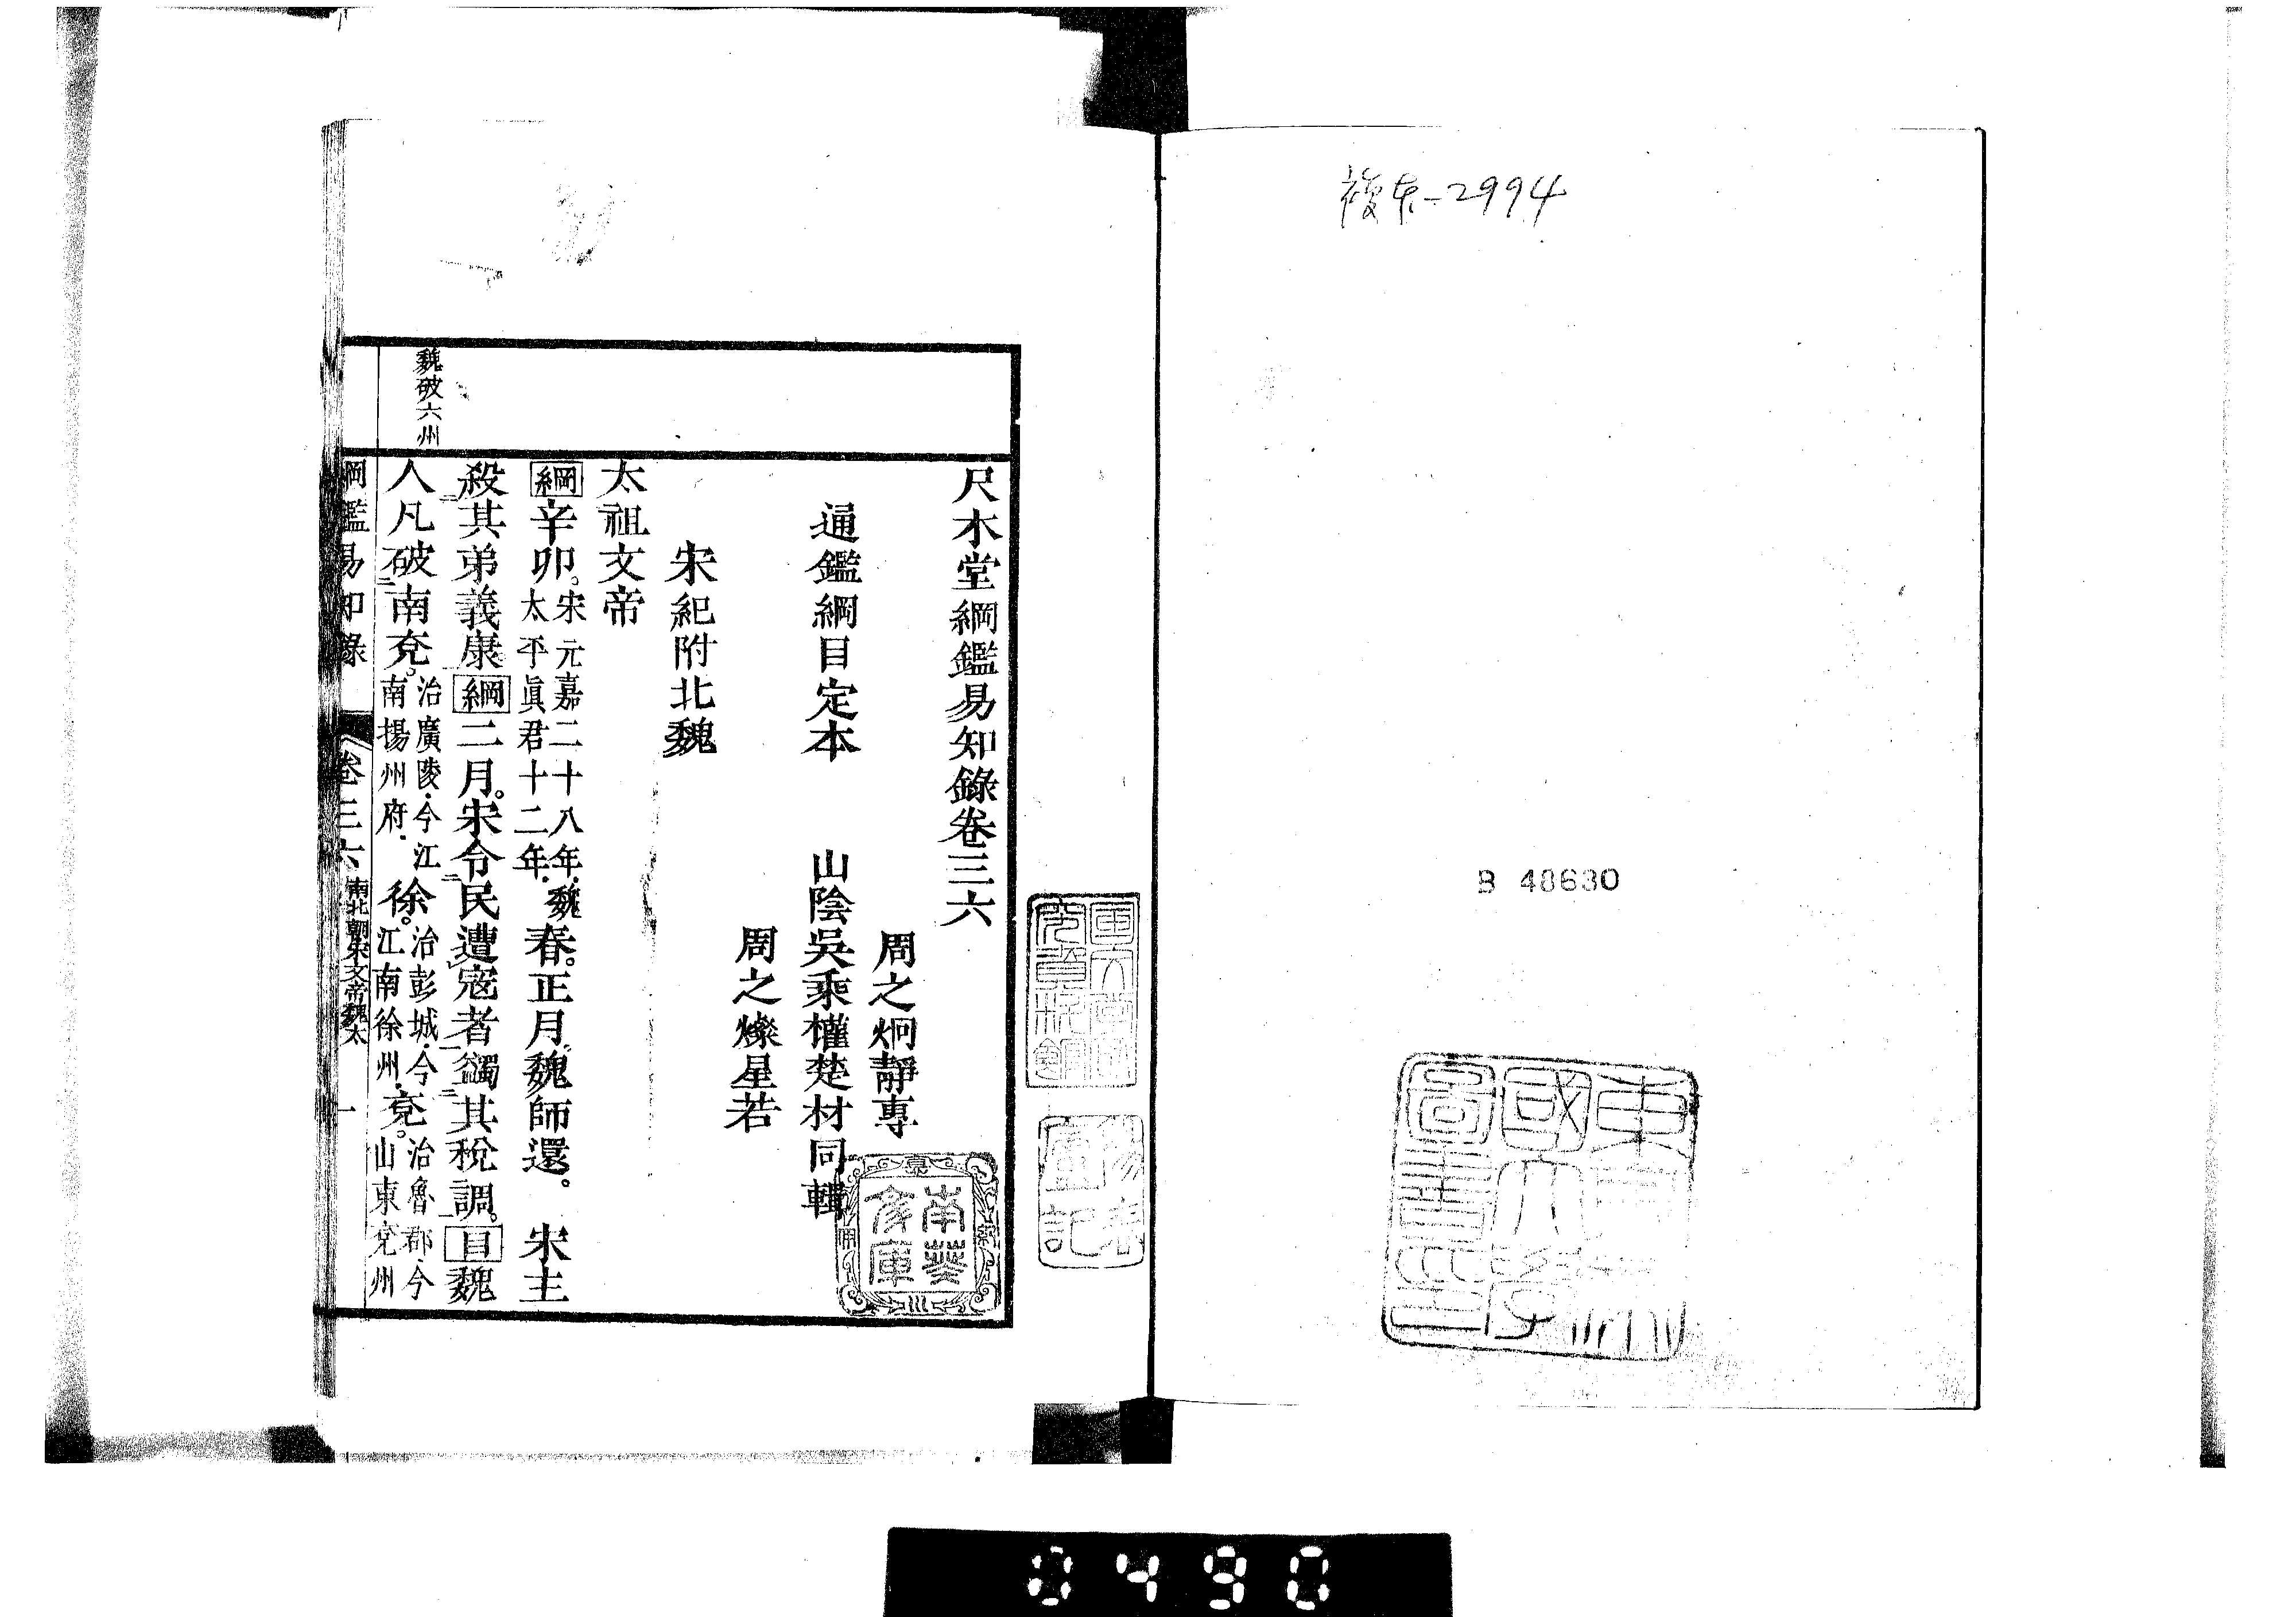 複本-2994
B 48630
東京帝國大學圖書印
尺木堂綱鑑易知錄卷三六
周之炯靜專
通鑑綱目定本　山陰吳乘權楚材同輯
周之燦星若
南葵文庫
宋紀附北魏
太祖文帝
綱辛卯宋元嘉二十八年魏太平眞君十二年春。正月。魏師還。宋主
殺其弟義康綱二月。宋令民遭寇者蠲其稅調。目魏
人凡破南兗。治廣陵今江南揚州府徐。治彭城今江南徐州兗。治魯郡今山東兗州
魏破六州
綱鑑易知錄　卷三六　南北朝宋文帝魏太　一
0490